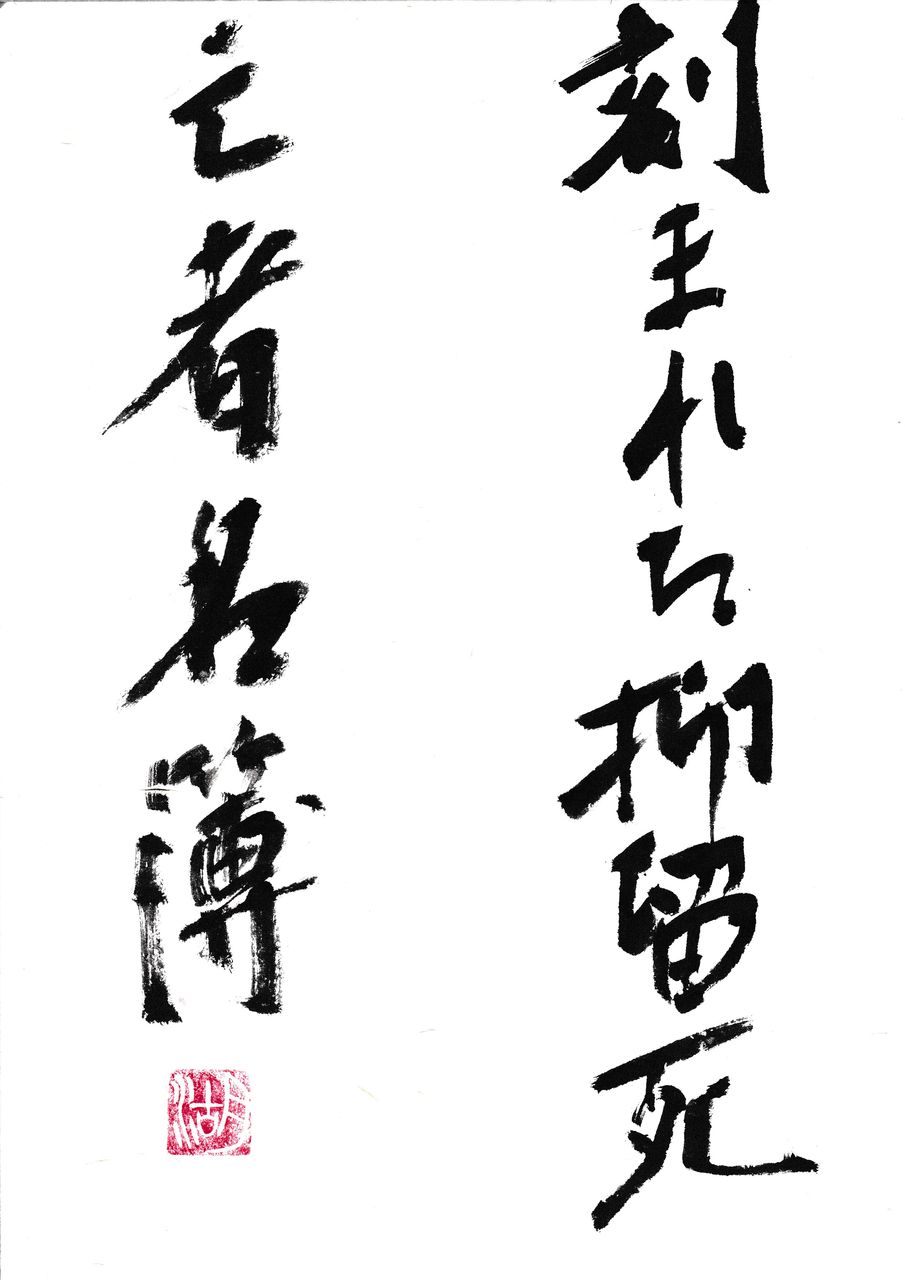 刻まれた抑留死
亡者名簿
湖